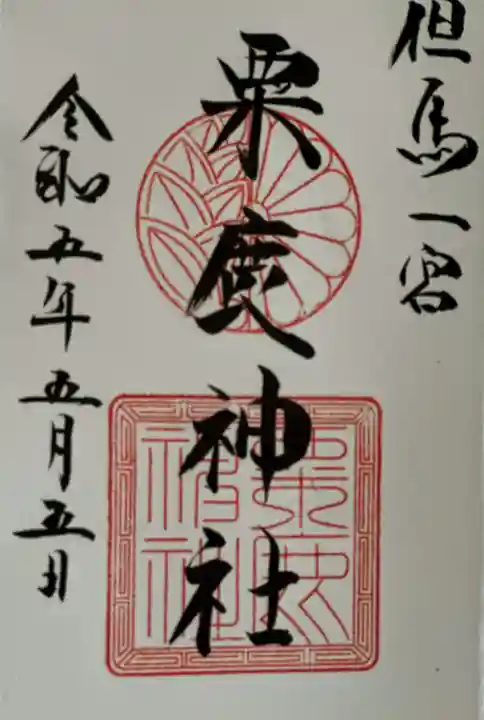 但馬一宮
粟鹿神社
令和五年五月五日
粟鹿神社